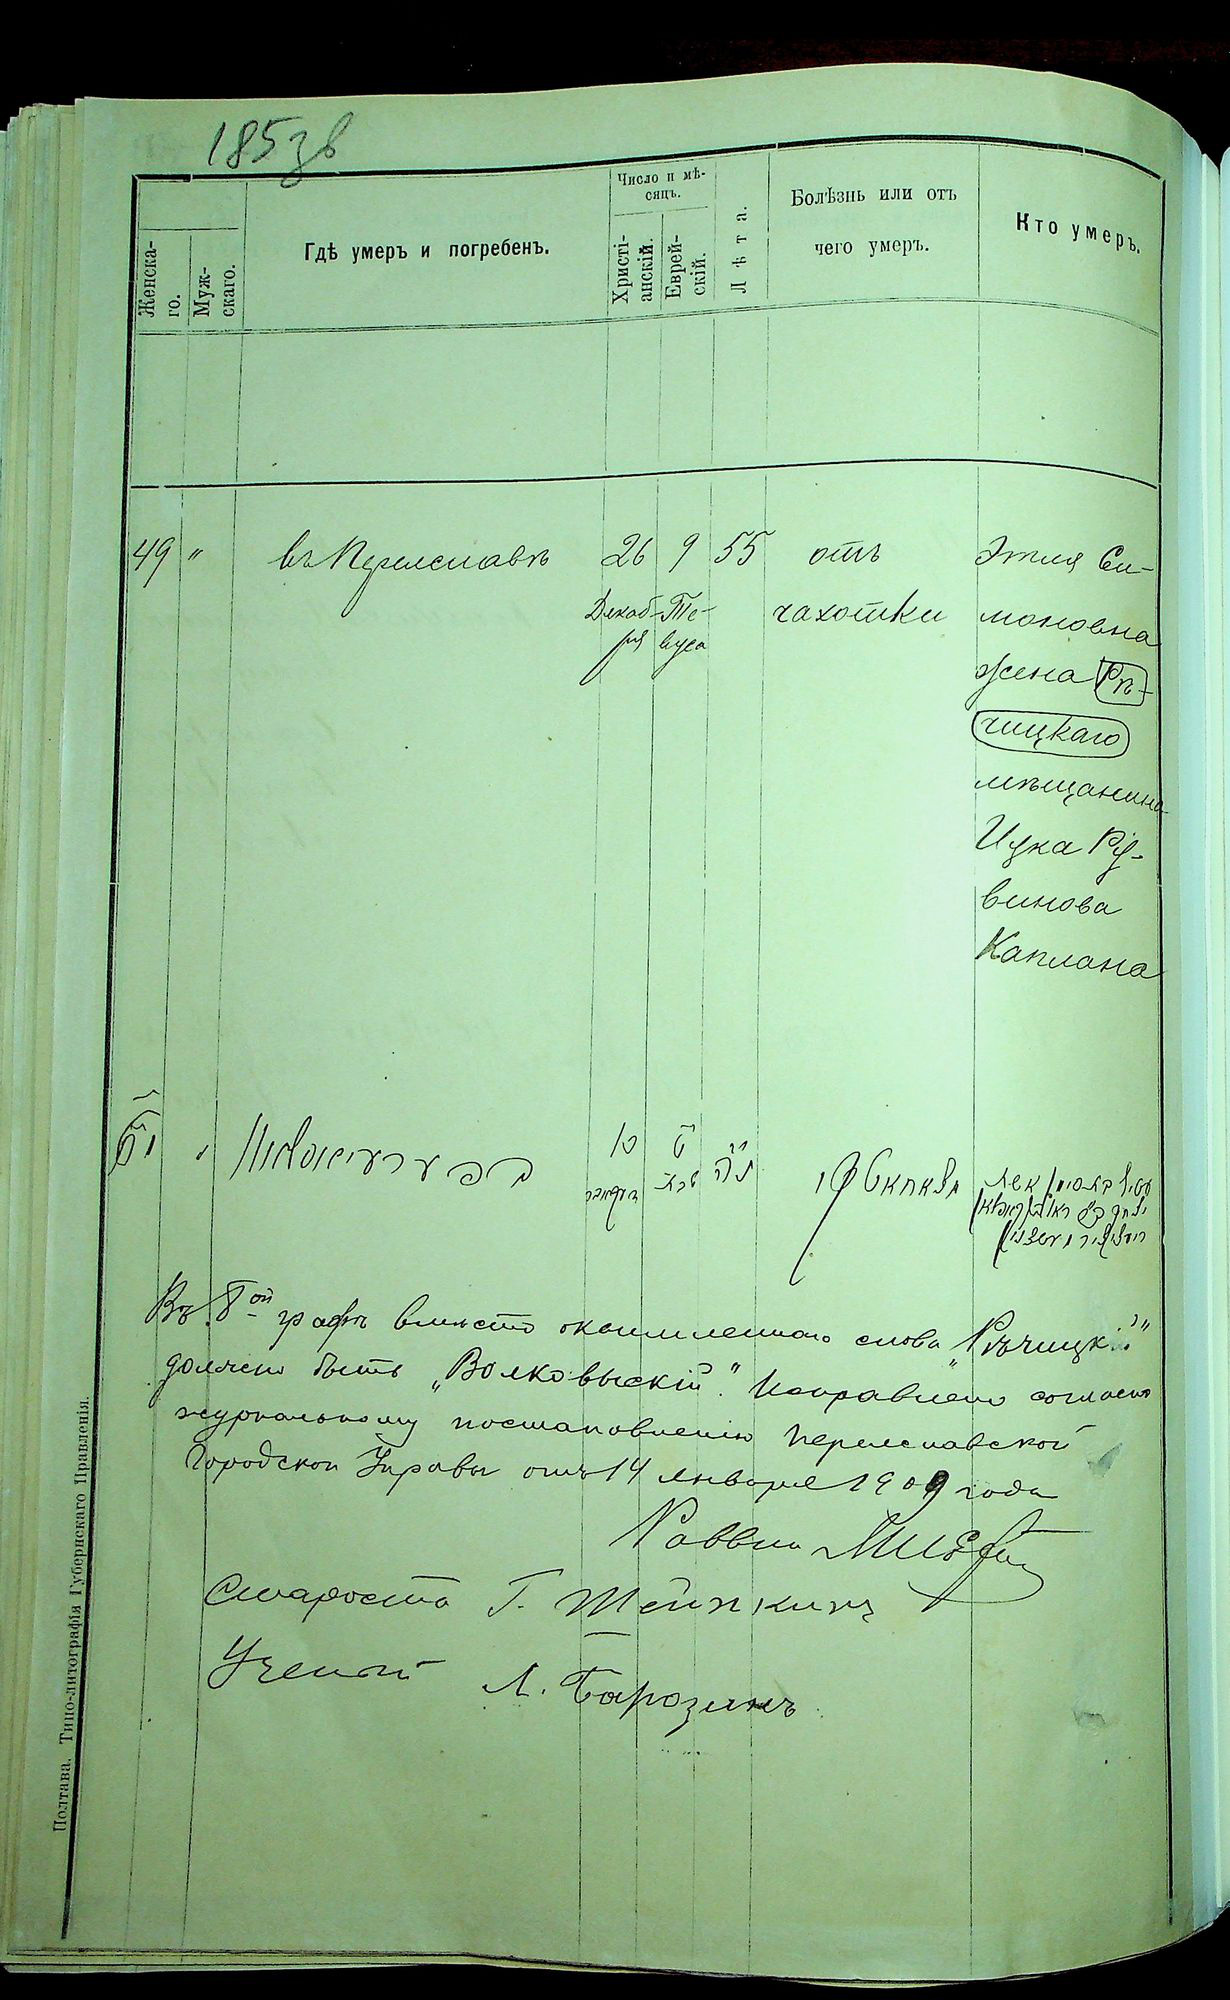 185 зв
Женска-
го.
Муж-
скаго.
Гдѣ умеръ и погребенъ.
Число и мѣ-
сяцъ.
Христі-
анскій.
Еврей-
скій.
Лѣта.
Болѣзнь или отъ
чего умеръ.
Кто умеръ.
49 " въ Переяславѣ 26 9 55 отъ Этля Си-
Декаб- Те- чахотки моновна
ря вуса
жена Рѣ-
чицкаго
мѣщанина
Ицка Ру-
винова
Каплана
Въ 8ой графѣ вмѣсто окаймленнаго слова „Рѣчицкій"
должно быть „Волковыскій". Исправлено согласно
журнальному постановленію Переяславской
Городской Управы отъ 14 января 1909 года
Раввин
Староста Г.
Ученый Л.
Полтава. Типо-литографія Губернскаго Правленія.